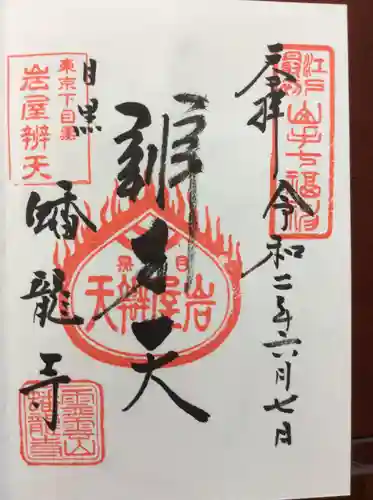 奉拝 令和二年六月七日
江戸最初山手七福神
辨才天
目黒
岩屋辨天
東京下目黒
岩屋辨天
目黒 蟠龍寺
霊雲山蟠龍寺